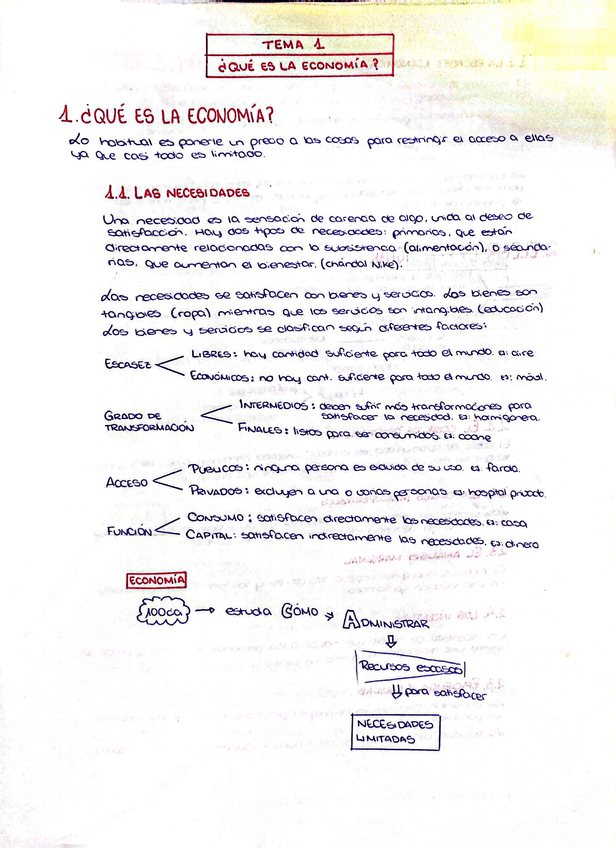 TEMA 1
¿QUÉ ES LA ECONOMÍA?
1. ¿QUÉ ES LA ECONOMÍA?
Lo habitual es ponerle un precio a las cosas para restringir el acceso a ellas
ya que casi todo es limitado.
1.1. LAS NECESIDADES
Una necesidad es la sensación de carencia de algo, unida al deseo de
satisfacción. Hay dos tipos de necesidades: primarias, que están
directamente relacionadas con la subsistencia (alimentación), o secunda-
rias, que aumentan el bienestar. (chándal Nike).
Las necesidades se satisfacen con bienes y servicios. Los bienes son
tangibles (ropa) mientras que los servicios son intangibles (educación)
Los bienes y servicios se clasifican según diferentes factores:
ESCASEZ
LIBRES: hay cantidad suficiente para todo el mundo. ej: aire
ECONÓMICOS: no hay cant. suficiente para todo el mundo. ej: móvil.
GRADO DE
TRANSFORMACIÓN
INTERMEDIOS: deben sufrir más transformaciones para
satisfacer la necesidad. ej: hormigonera.
FINALES: listos para ser consumidos. ej: coche
ACCESO
PÚBLICOS: ninguna persona es excluida de su uso. ej: farola.
PRIVADOS: excluyen a una o varias personas ej: hospital privado.
FUNCIÓN
CONSUMO: satisfacen directamente las necesidades. ej: casa
CAPITAL: satisfacen indirectamente las necesidades. ej: dinero
ECONOMÍA
→ estudia CÓMO
ADMINISTRAR
Recursos escasos
para satisfacer
NECESIDADES
LIMITADAS